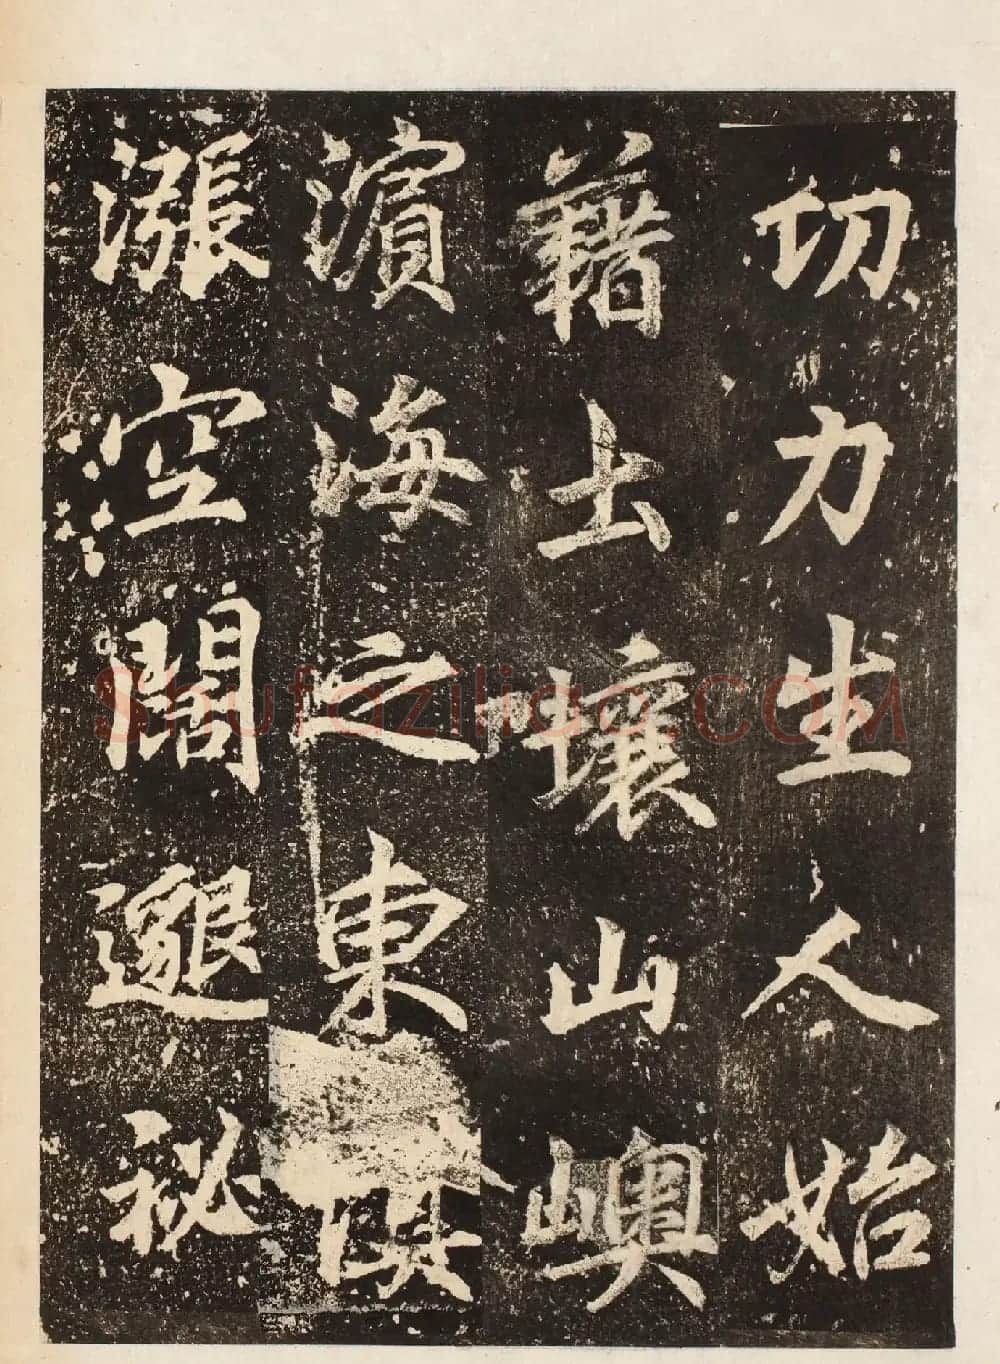 切力生人始
藉土壤山嶼
濱海之東
漲空闊邈祕
Shufaziliao.COM